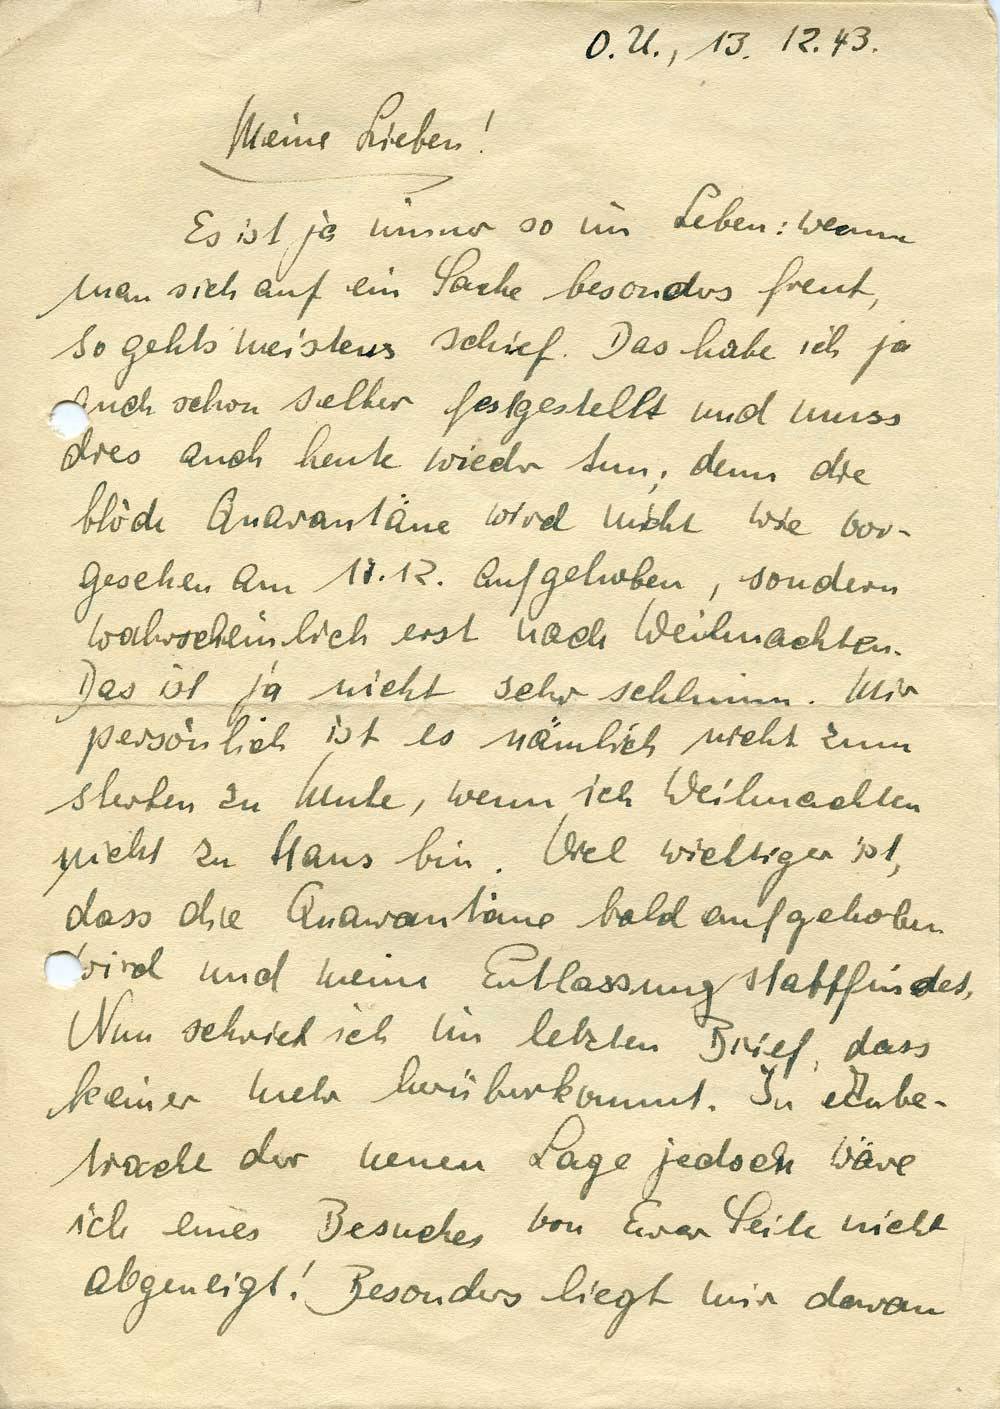 O.U., 13. 12.43.
Meine Lieben!
Es ist ja immer so im Leben: wenn
man sich auf ein Sache besonders freut,
so gehts meistens schief. Das habe ich ja
auch schon selber festgestellt und muss
dies auch heute wieder tun, denn die
blöde Quarantäne wird nicht wie vor-
gesehen am 17.12. aufgehoben, sondern
wahrscheinlich erst nach Weihnachten.
Das ist ja nicht sehr schlimm. Mir
persönlich ist es nämlich nicht zum
sterben zu Mute, wenn ich Weihnachten
nicht zu Haus bin. Viel wichtiger ist,
dass die Quarantäne bald aufgehoben
wird und meine Entlassung stattfindet.
Nun schrieb ich im letzten Brief, dass
keiner mehr herüberkommt. In Anbe-
tracht der neuen Lage jedoch wäre
ich eines Besuches von Eurer Seite nicht
abgeneigt! Besonders liegt mir daran